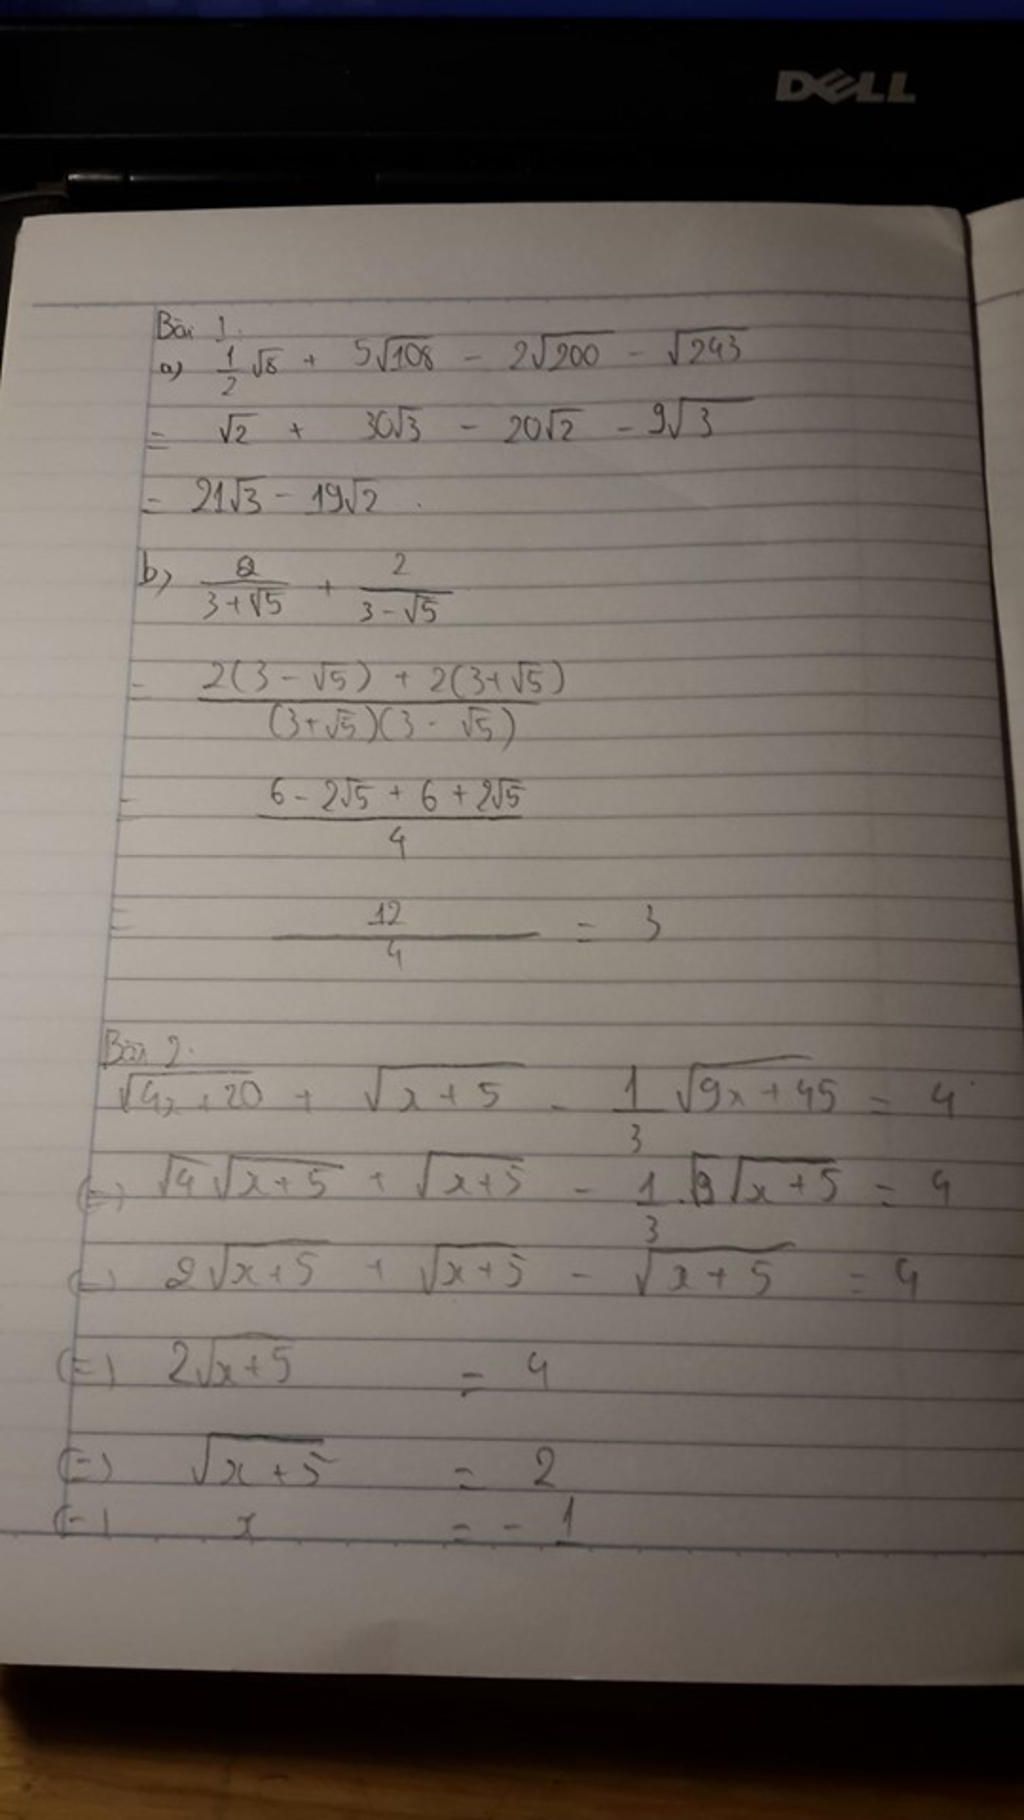 DELL
Bài 1.
a) 1/2 √8 + 5√108 - 2√200 - √243
= √2 + 30√3 - 20√2 - 9√3
= 21√3 - 19√2.
b) 2/(3+√5) + 2/(3-√5)
= (2(3-√5) + 2(3+√5))/((3+√5)(3-√5))
= (6-2√5 + 6 + 2√5)/4
= 12/4 = 3
Bài 2.
√(4x+20) + √(x+5) - 1/3 √(9x+45) = 4
(=) √4 √(x+5) + √(x+5) - 1/3 . 3 √(x+5) = 4
(=) 2√(x+5) + √(x+5) - √(x+5) = 4
(=) 2√(x+5) = 4
(=) √(x+5) = 2
(=) x = -1